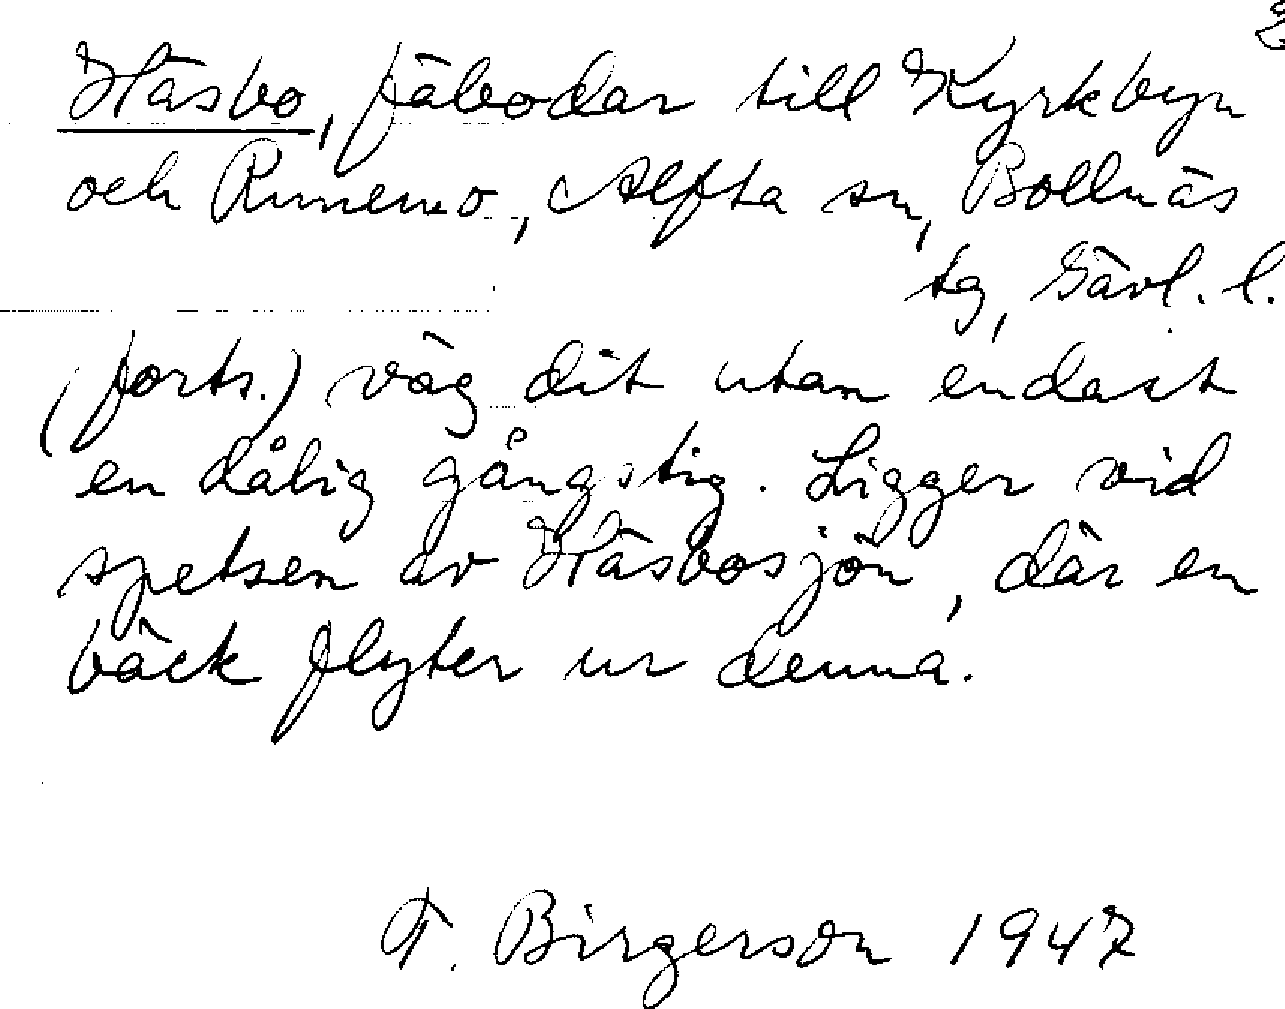 2
Häsbo, fäbodar till Kyrkbyn
och Runemo, Alfta sn, Bollnäs
tg, Gävl. l.
(forts.) väg dit utan endast
en dålig gångstig. Ligger vid
spetsen av Häsbosjön, där en
bäck flyter ur denna.
F. Birgerson 1947